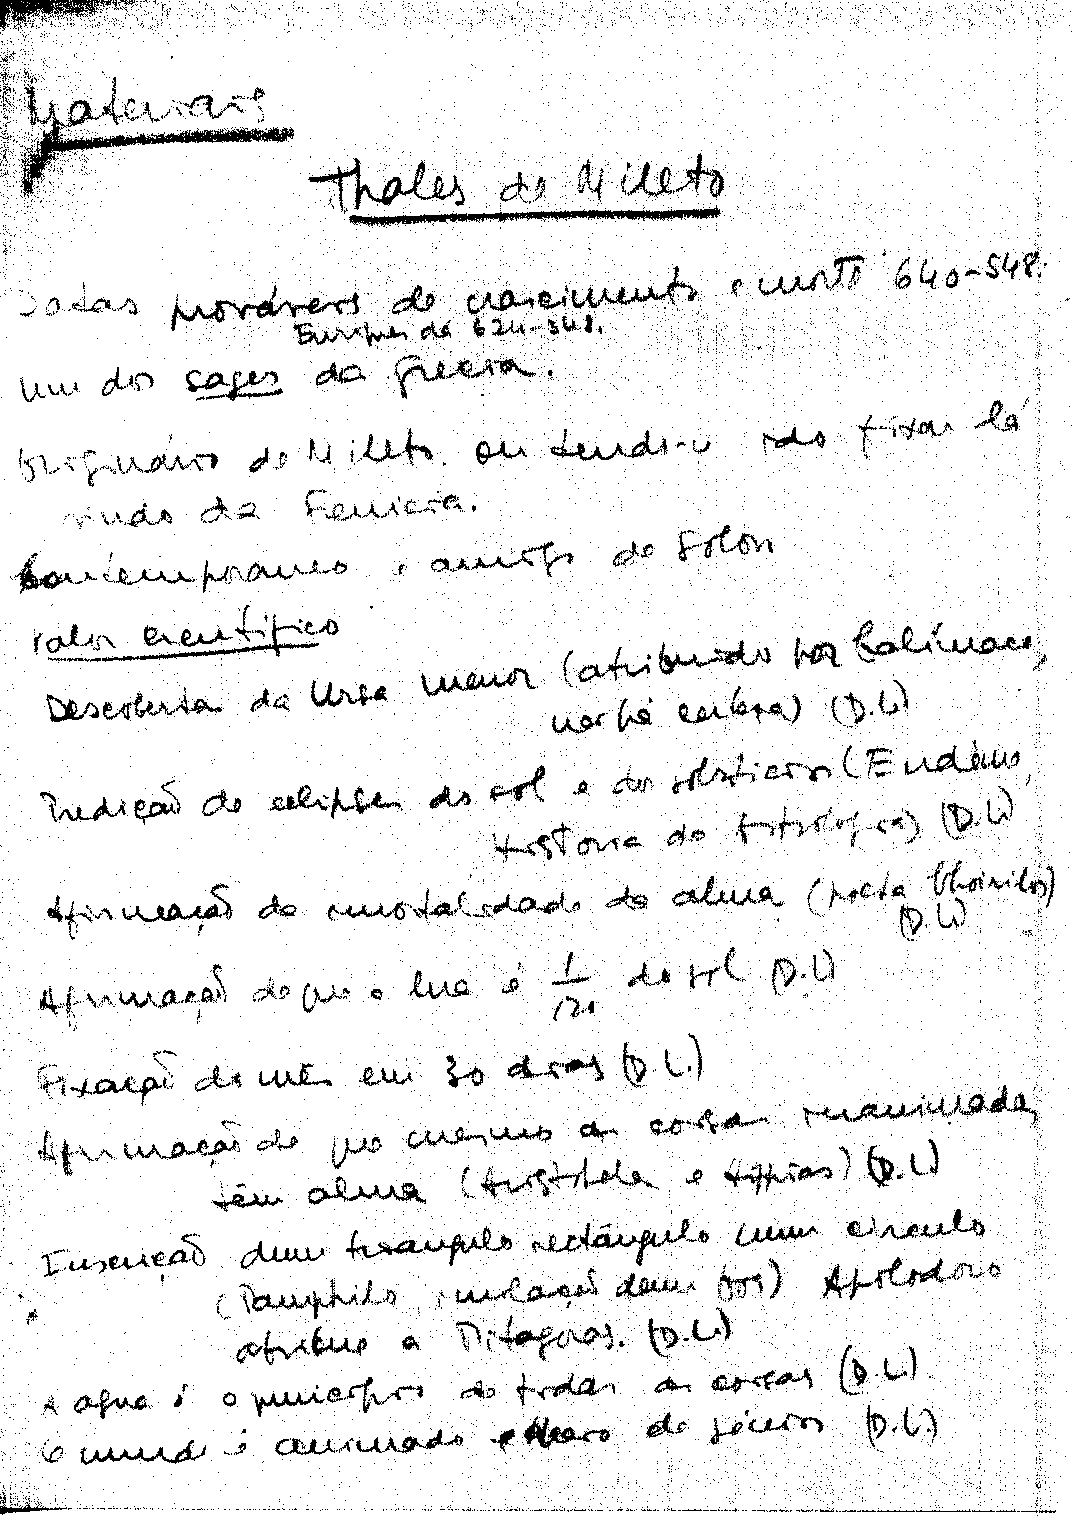 Materiais
Thales de Mileto
Datas prováveis de nascimento e morte 640-548.
624-548.
Um dos sages da Grécia.
Originário de Mileto ou tendo-se ido fixar lá
vindo da Fenícia.
Contemporâneo e amigo de Solon
Valor científico
Descoberta da Ursa menor (atribuído por Calímaco,
(D.L)
Predição de eclipses do sol e dos solstícios (Eudémo,
História da Astrologia) (D.L)
Afirmação da imortalidade da alma (poeta Choirilos)
(D.L)
Afirmação de que a lua é 1/120 do sol (D.L)
Fixação do mês em 30 dias (D.L.)
Afirmação de que mesmo as coisas inanimadas
têm alma (Aristóteles e Hippias) (D.L)
Inscrição dum triângulo rectângulo num círculo
(Pamphilo, imolação dum boi) Apolodoro
atribue a Pitágoras. (D.L)
A agua é o princípio de todas as coisas (D.L)
O mundo é animado e cheio de génios (D.L.)